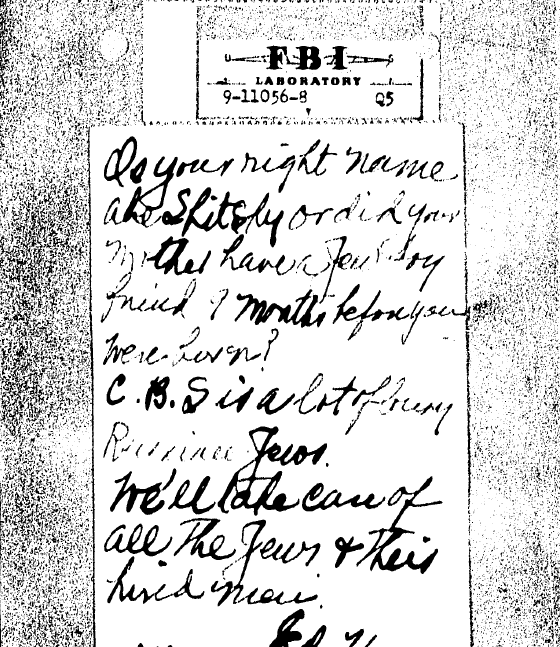 FBI
LABORATORY
9-11056-8 Q5
Is your right name
or did your
mother have a Jew boy
friend 9 months before you
were born?
C.B.S is a lot of lousy
Russian Jews.
We'll take care of
all the Jews & their
hired men.